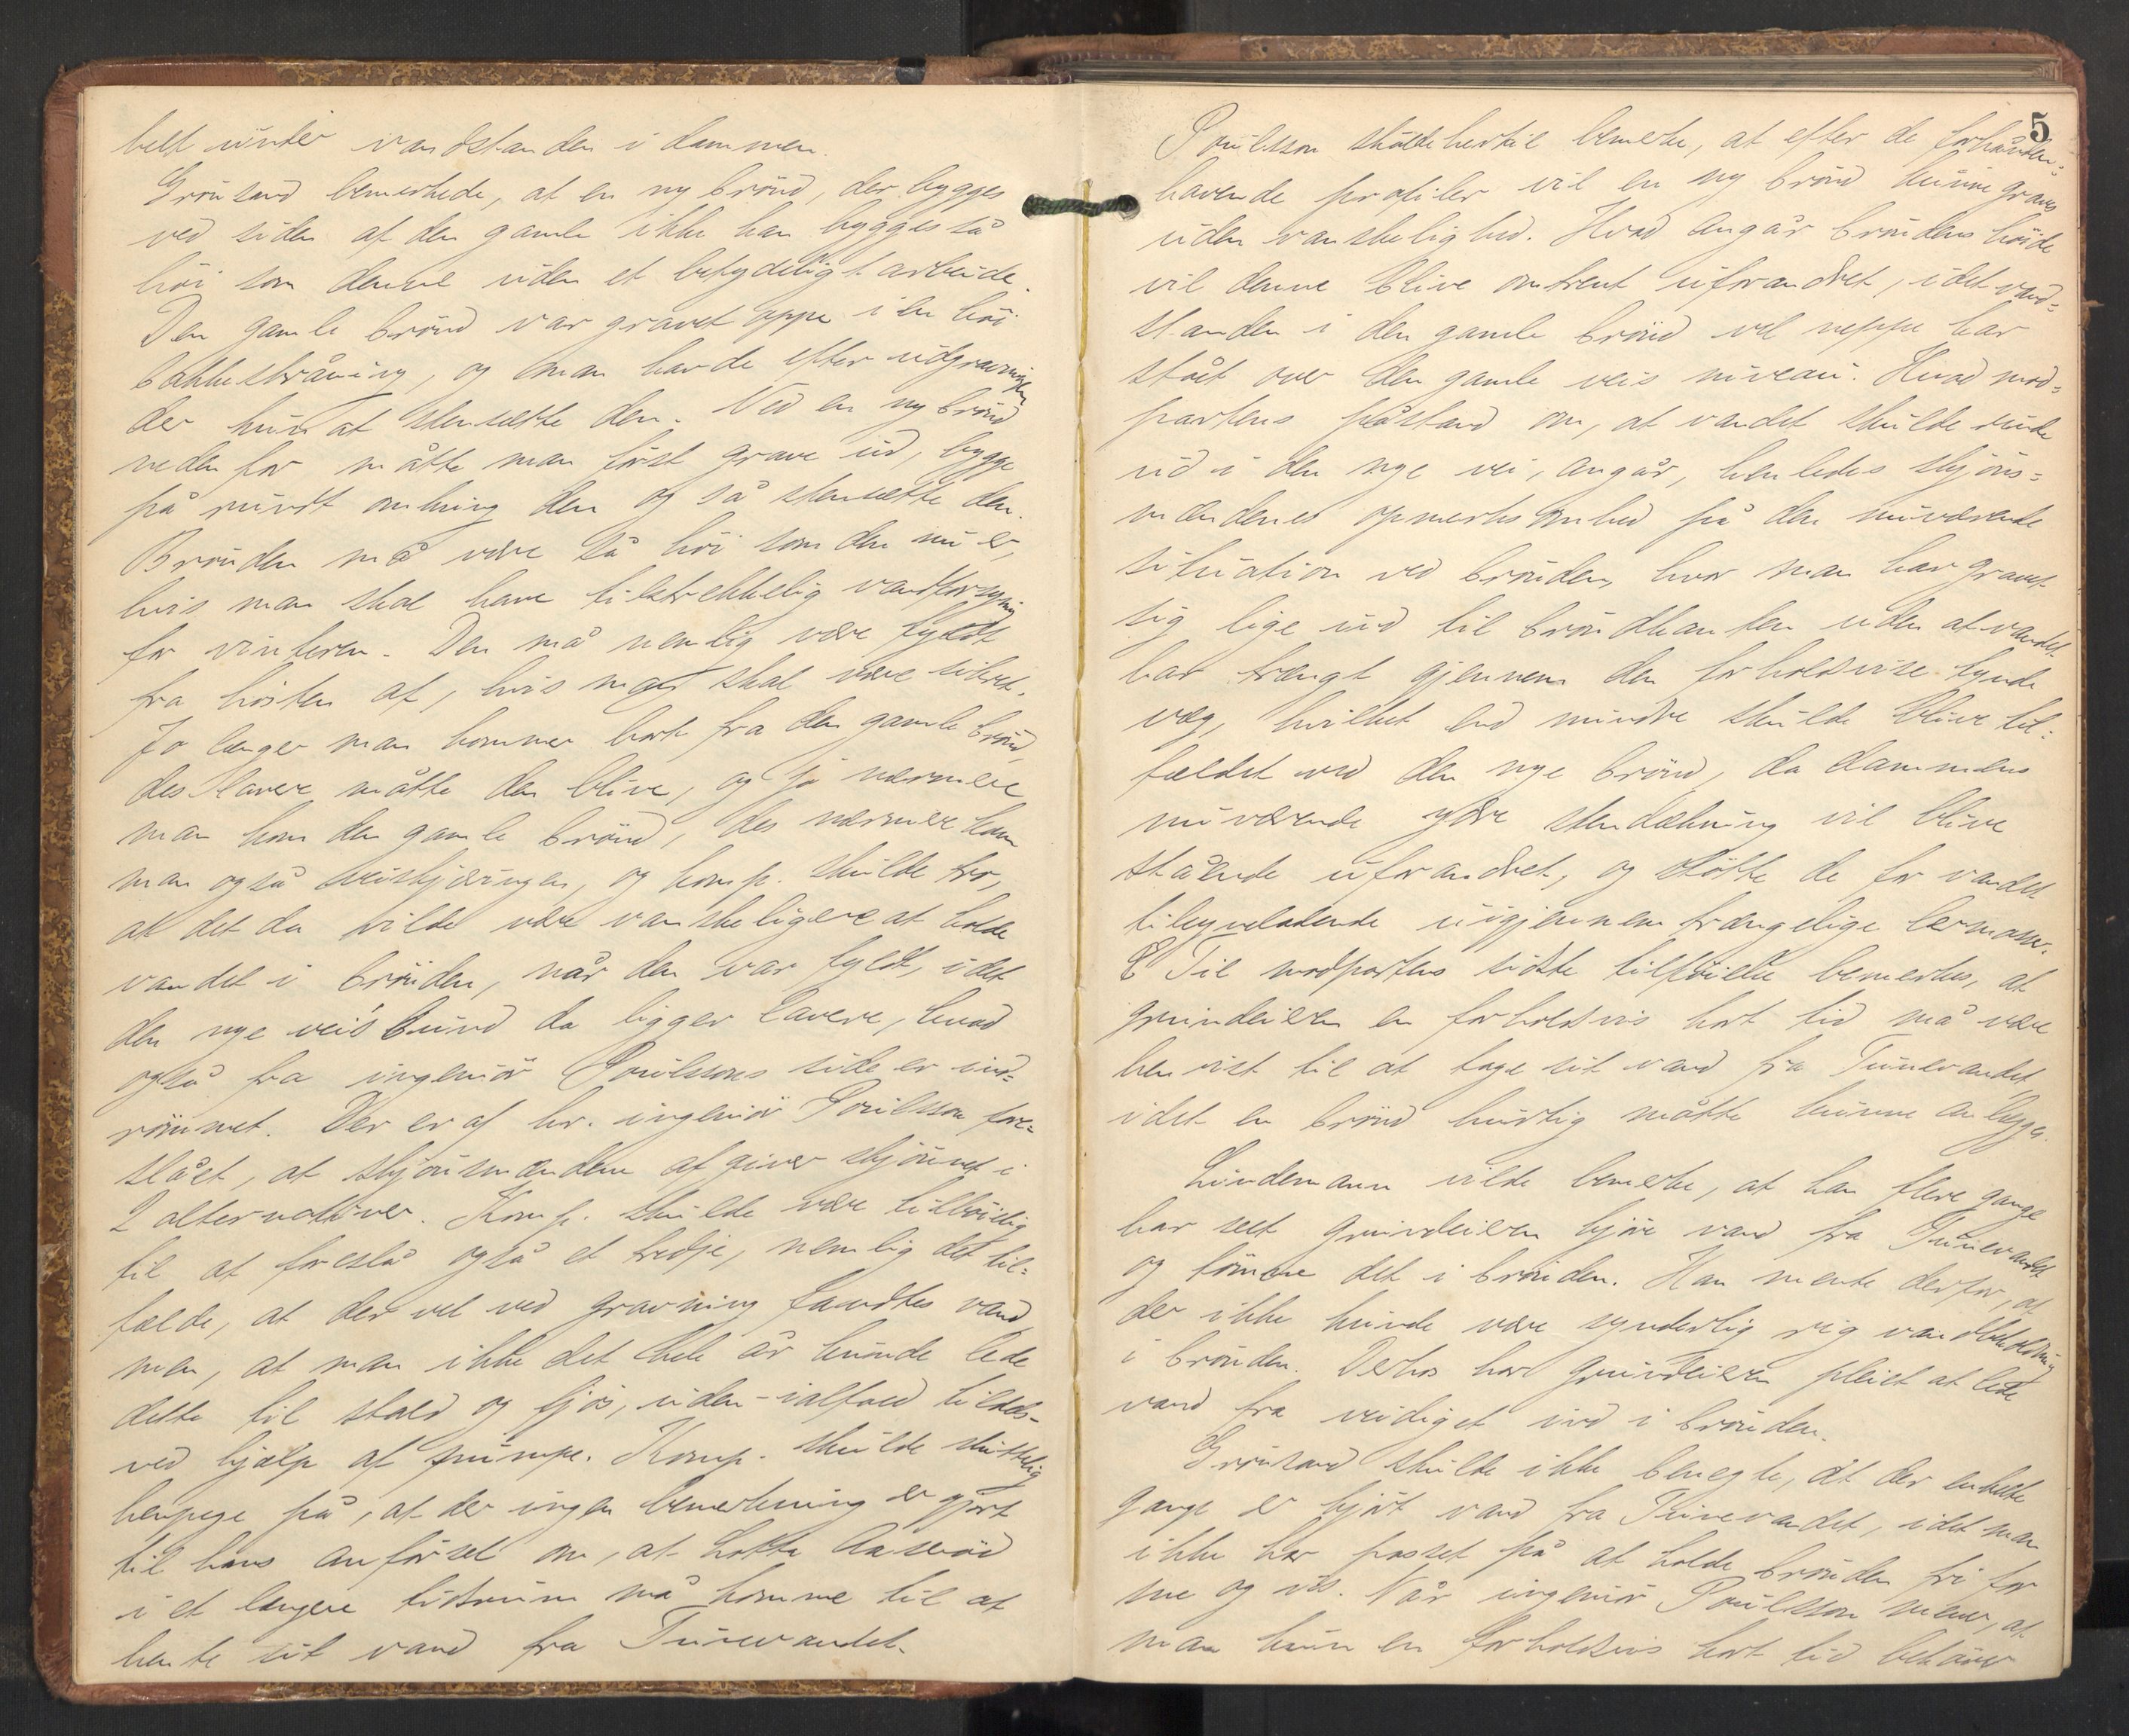 helt under vandstanden i dammen.
Grönsand bemerkede, at en ny brönd, der bygges
ved siden af den gamle ikke kan bygges så
höi som denne uden et betydeligt arbeide.
Den gamle brönd var gravet oppe i en höi
bakkeskråning, og man havde efter udgravningen
der kun at stensætte den. Ved en ny brönd
nedenfor måtte man först grave ud, bygge
på rundt omkring den og så stensætte den.
Brönden må være så höi som den nu er,
hvis man skal have tilstrekkelig vandforsyning
for vinteren. Den må nemlig være fyldt
fra hösten af, hvis man skal være sikret.
Jo længer man kommer bort fra den gamle brönd,
des lavere måtte den blive, og jo nærmere
man kom den gamle brönd, des nærmere kom
man også veiskjæringen, og komp. skulde tro,
at det da vilde være vanskeligere at holde
vandet i brönden, når den var fyldt, idet
den nye veis bund da ligger lavere, hvad
også fra ingeniör Poulssons side er ind-
römmet. Der er af hr. ingeniör Poulsson fore-
slået, at skjönsmændene afgiver skjönnet i
2 alternativer. Komp. skulde være tilböielig
til at foreslå også et tredje, nemlig det til-
fælde, at der vel ved gravning fandtes vand,
men, at man ikke det hele år kunde lede
dette til stald og fjös, uden - ialfald tildels -
ved hjælp af pumpe. Komp. skulde sluttelig
henpege på, at der ingen bemerkning er gjort
til hans anförsel om, at Lotte Aaseröd
i et længere tidsrum må komme til at
hente sit vand fra Tunevandet.
5
Poulsson skulde hertil bemerke, at efter de forhånden-
havende profiler vil en ny brönd kunne graves
uden vanskelighed. Hvad angår bröndens höide
vil denne blive omtrent uforandret, idet vand-
standen i den gamle brönd vel neppe har
stået over den gamle veis niveau. Hvad mod-
partens påstand om, at vandet skulde rinde
ud i den nye vei, angår, henledes skjöns-
mændenes opmerksomhed på den nuværende
situation ved brönden, hvor man har gravet
sig lige ind til bröndkanten uden at vandet
har trængt gjennem den forholdsvise tynde
væg, hvilket end mindre skulde blive til-
fældet ved den nye brönd, da dammens
nuværende ydre stendækning vil blive
stående uforandret, og stötte de for vandet
tilsyneladende uigjennemtrængelige lermasser.
Til modpartens sidste tilföielse bemerkes, at
grundeieren en forholdsvis kort tid må være
henvist til at tage sit vand fra Tunevandet,
idet en brönd hurtig måtte kunne anlægges.
Lindemann vilde bemerke, at han flere gange
har seet grundeieren kjöre vand fra Tunevandet
og tömme det i brönden. Han mente derfor, at
der ikke kunde være synderlig rig vandbeholdning
i brönden. Derhos har grundeieren pleiet at lede
vand fra veidiget ind i brönden.
Grönsand skulde ikke benegte, at der enkelte
gange er kjört vand fra Tunevandet, idet man
ikke har passet på at holde brönden fri for
sne og is. Når ingeniör Poulsson mener, at
man kun en forholdsvis kort tid behöver